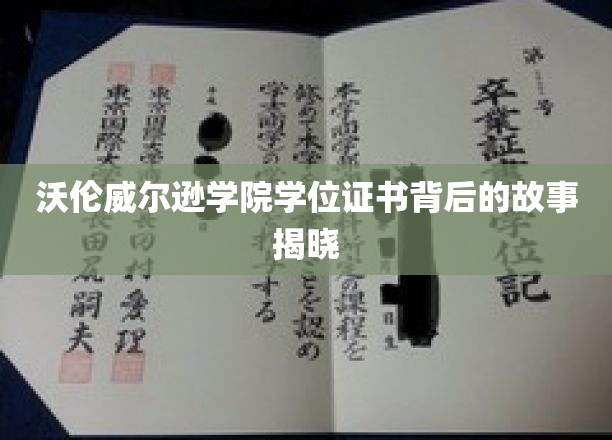 沃伦威尔逊学院学位证书背后的故事
揭晓
第 号
卒業証 学位記
本学商学部 所定の課程を
修めて本学 ことを認め
学士(商学)の する
東京国際大学 田村愛理
東京国際大 長田尻嗣夫